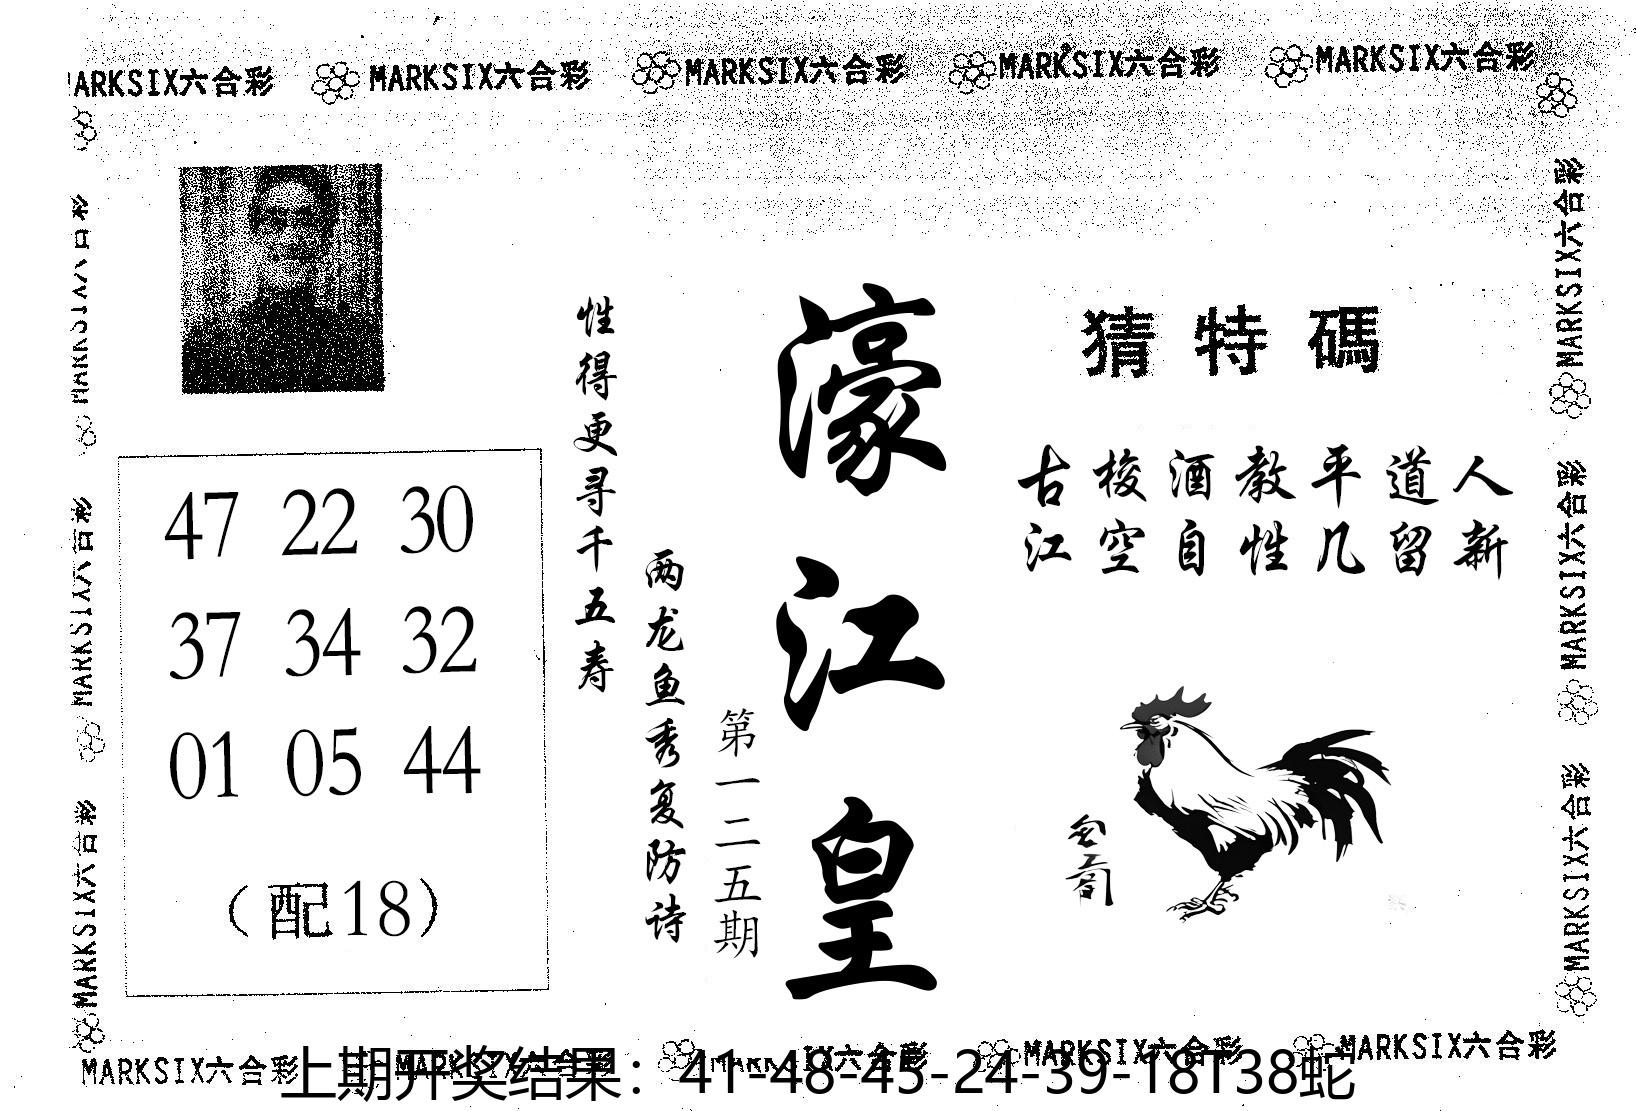 MARKSIX六合彩 MARKSIX六合彩 MARKSIX六合彩 MARKSIX六合彩 MARKSIX六合彩
MARKSIX六合彩
MARKSIX六合彩
MARKSIX六合彩
猜特碼
古梭酒教平道人
江空自性几留新
濠江皇
第一二五期
两龙鱼秀复防诗
性得更寻千五寿
47 22 30
37 34 32
01 05 44
（配18）
MARKSIX六合彩
MARKSIX六合彩
MARKSIX六合彩
MARKSIX六合彩 MARKSIX六合彩 MARKSIX六合彩 MARKSIX六合彩 MARKSIX六合彩
上期开奖结果：41-48-45-24-39-18T38蛇